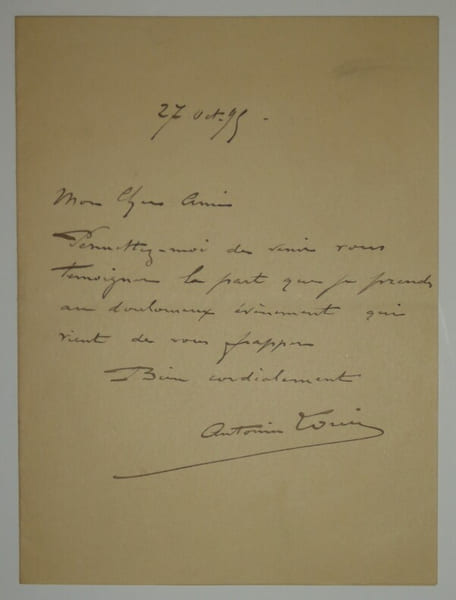 27 Oct. 95 -
Mon Cher Ami
Permettez-moi de venir vous
temoigner la part que je prends
au douloureux évènement qui
vient de vous frapper
Bien cordialement
Antonin